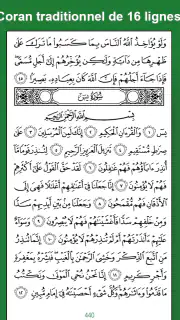 Coran traditionnel de 16 lignes
وَلَوْ يُؤَاخِذُ ٱللَّهُ ٱلنَّاسَ بِمَا كَسَبُوا۟ مَا تَرَكَ عَلَىٰ
ظَهْرِهَا مِن دَآبَّةٍ وَلَٰكِن يُؤَخِّرُهُمْ إِلَىٰٓ أَجَلٍ مُّسَمًّى
فَإِذَا جَآءَ أَجَلُهُمْ فَإِنَّ ٱللَّهَ كَانَ بِعِبَادِهِۦ بَصِيرًۢا ٤٥
سُورَةُ يسٓ
بِسْمِ ٱللَّهِ ٱلرَّحْمَٰنِ ٱلرَّحِيمِ
يسٓ ١ وَٱلْقُرْءَانِ ٱلْحَكِيمِ ٢ إِنَّكَ لَمِنَ ٱلْمُرْسَلِينَ ٣ عَلَىٰ
صِرَٰطٍ مُّسْتَقِيمٍ ٤ تَنزِيلَ ٱلْعَزِيزِ ٱلرَّحِيمِ ٥ لِتُنذِرَ قَوْمًا مَّآ
أُنذِرَ ءَابَآؤُهُمْ فَهُمْ غَٰفِلُونَ ٦ لَقَدْ حَقَّ ٱلْقَوْلُ عَلَىٰٓ أَكْثَرِهِمْ
فَهُمْ لَا يُؤْمِنُونَ ٧ إِنَّا جَعَلْنَا فِىٓ أَعْنَٰقِهِمْ أَغْلَٰلًا فَهِىَ إِلَى
ٱلْأَذْقَانِ فَهُم مُّقْمَحُونَ ٨ وَجَعَلْنَا مِنۢ بَيْنِ أَيْدِيهِمْ سَدًّا
وَمِنْ خَلْفِهِمْ سَدًّا فَأَغْشَيْنَٰهُمْ فَهُمْ لَا يُبْصِرُونَ ٩ وَسَوَآءٌ
عَلَيْهِمْ ءَأَنذَرْتَهُمْ أَمْ لَمْ تُنذِرْهُمْ لَا يُؤْمِنُونَ ١٠ إِنَّمَا تُنذِرُ
مَنِ ٱتَّبَعَ ٱلذِّكْرَ وَخَشِىَ ٱلرَّحْمَٰنَ بِٱلْغَيْبِ فَبَشِّرْهُ بِمَغْفِرَةٍ
وَأَجْرٍ كَرِيمٍ ١١ إِنَّا نَحْنُ نُحْىِ ٱلْمَوْتَىٰ وَنَكْتُبُ
مَا قَدَّمُوا۟ وَءَاثَٰرَهُمْ وَكُلَّ شَىْءٍ أَحْصَيْنَٰهُ فِىٓ إِمَامٍ مُّبِينٍ ١٢
440